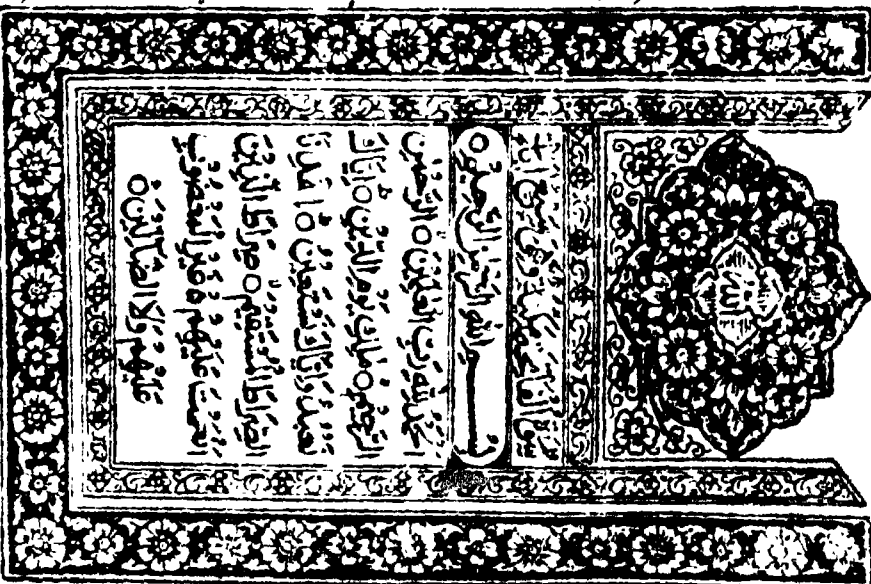 سورة الفاتحة مكية وهي سبع ايات
بسم الله الرحمن الرحيم ○
الحمد لله رب العلمين ○ الرحمن
الرحيم ○ ملك يوم الدين ○ اياك
نعبد واياك نستعين ○ اهدنا
الصراط المستقيم ○ صراط الذين
انعمت عليهم ○ غير المغضوب
عليهم ولا الضالين ○